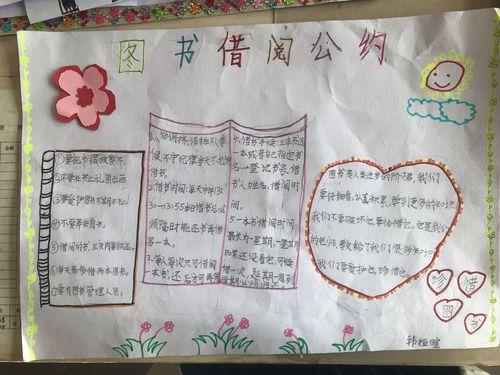 图书借阅公约
①要把书籍放整齐。
②不要在书上乱画乱写
④不要弄脏书。
⑤借阅的书,三天内要归还。
⑥每天最多借两本图书。
⑦要有图书管理人员。
借书。
2.借书时间:每天中午13:
30—13:55归借书后必
须写好能还书再借
另一本。
3.每人每次只可借阅
一本书,还后方可再借
4.借书手续:三本书还
一本或者自己指定书
名—登记书名、借
书人姓名、借阅时
间。
5.一本书借阅时间
最长为一星期,一星期
如果还没看完,可续
借一次,延期一星期
图书是人类进步的阶梯,我们
要仔细看,认真积累,学到更多的知识
我们不要破坏它,要珍惜它。也是我们
的老师,教给了我们很多知识
我们要爱护它,珍惜它。
珍惜
图书